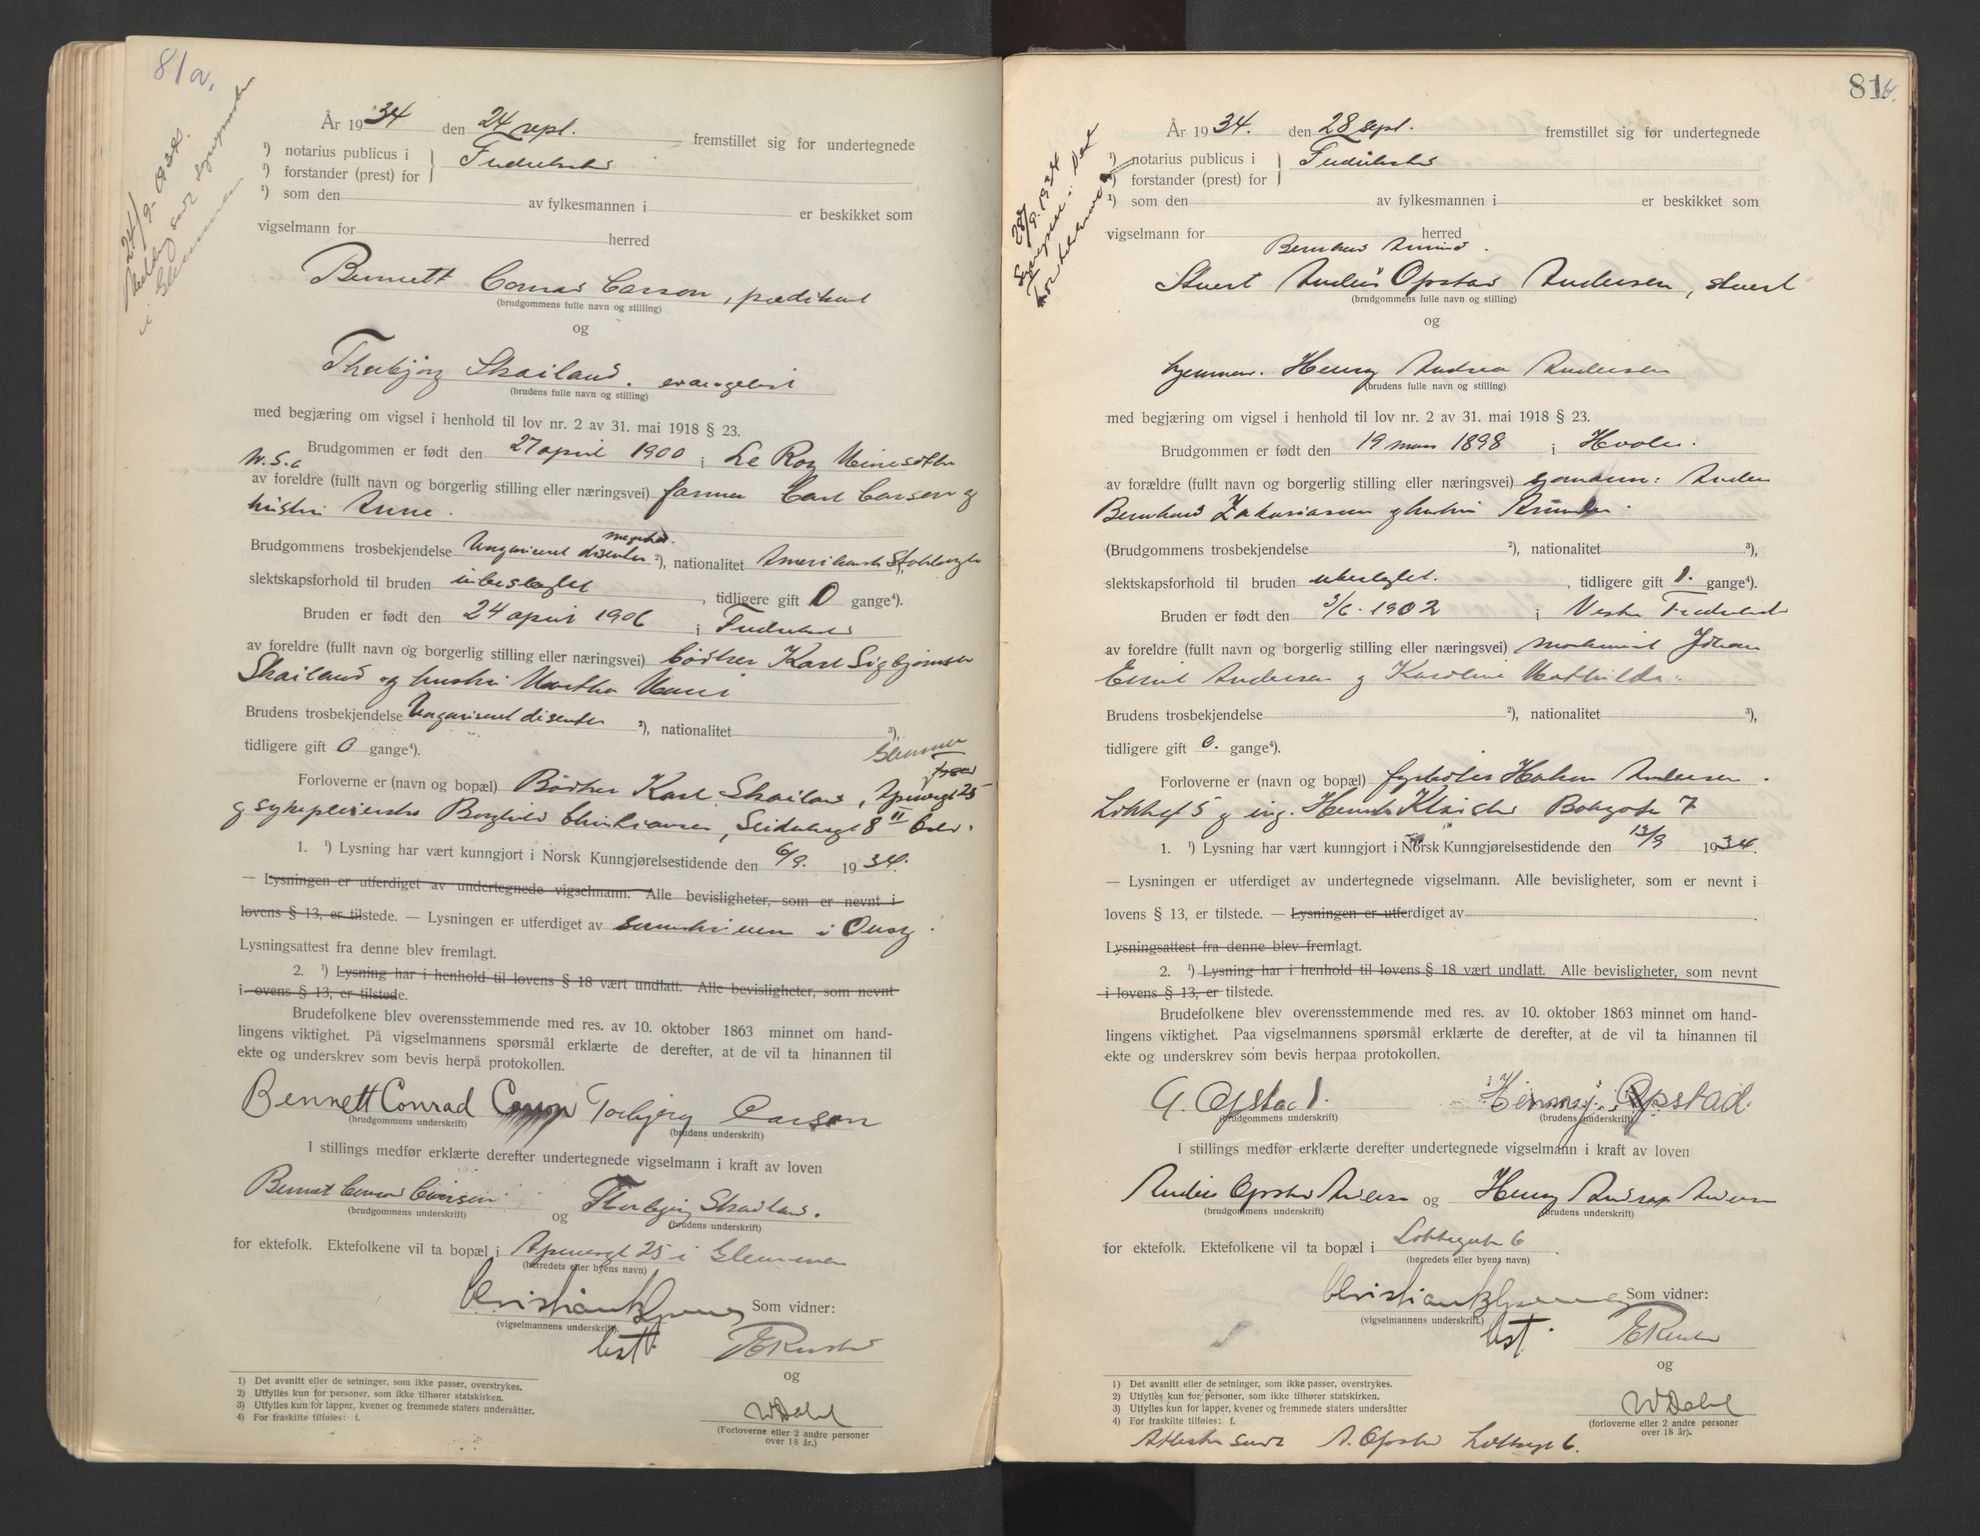 81a.
24/9. 1934.
År 1934 den 24 sept. fremstillet sig for undertegnede
¹) notarius publicus i
¹) forstander (prest) for
¹) som den av fylkesmannen i er beskikket som
vigselmann for herred
Bennett Conrad Carson, predikant
(brudgommens fulle navn og stilling)
og
Thorbjørg Skailand. evangelist
(brudens fulle navn og stilling)
med begjæring om vigsel i henhold til lov nr. 2 av 31. mai 1918 § 23.
Brudgommen er født den 27 april 1900 i Le Roy Minesotta
av foreldre (fullt navn og borgerlig stilling eller næringsvei) farmer Carl Carson og
hustru Anne.
Brudgommens trosbekjendelse disenter ²), nationalitet
slektskapsforhold til bruden ubeslegtet, tidligere gift 0 gange⁴).
Bruden er født den 24 april 1906 i
av foreldre (fullt navn og borgerlig stilling eller næringsvei) bødker Karl
Skailand og hustru Martha
Brudens trosbekjendelse disenter ²), nationalitet ³),
tidligere gift 0 gange⁴).
Glemmen
Forloverne er (navn og bopæl) Bødker Karl Skailand, 25
og 8 II Oslo.
1. ¹) Lysning har vært kunngjort i Norsk Kunngjørelsestidende den 6/9. 1934.
— Lysningen er utferdiget av undertegnede vigselmann. Alle bevisligheter, som er nevnt i
lovens § 13, er tilstede. — Lysningen er utferdiget av sorenskriveren i Onsøy.
Lysningsattest fra denne blev fremlagt.
2. ¹) Lysning har i henhold til lovens § 18 vært undlatt. Alle bevisligheter, som nevnt
i ovens § 13, er tilstede.
Brudefolkene blev overensstemmende med res. av 10. oktober 1863 minnet om hand-
lingens viktighet. På vigselmannens spørsmål erklærte de derefter, at de vil ta hinannen til
ekte og underskrev som bevis herpå protokollen.
Bennett Conrad Carson Torbjørg Carson
(brudgommens underskrift) (brudens underskrift)
I stillings medfør erklærte derefter undertegnede vigselmann i kraft av loven
Bennet Conrad Carson og Thorbjørg Skailand.
(brudgommens underskrift) (brudens underskrift)
for ektefolk. Ektefolkene vil ta bopæl i 25 i Glemmen
(herredets eller byens navn)
Som vidner:
(vigselmannens underskrift)
cst.
og
W Dahl
(Forloverne eller 2 andre personer
over 18 år.)
1) Det avsnitt eller de setninger, som ikke passer, overstrykes.
2) Utfylles kun for personer, som ikke tilhører statskirken.
3) Utfylles kun for lapper, kvener og fremmede staters undersåtter.
4) For fraskilte tilføies: f.
81b.
28/9. 1934
År 1934. den 28 sept. fremstillet sig for undertegnede
¹) notarius publicus i
¹) forstander (prest) for
¹) som den av fylkesmannen i er beskikket som
vigselmann for herred
Stuert Anders Opstad Andersen, stuert
(brudgommens fulle navn og stilling)
og
Henny Andrea Andersen
(brudens fulle navn og stilling)
med begjæring om vigsel i henhold til lov nr. 2 av 31. mai 1918 § 23.
Brudgommen er født den 19 mars 1898 i Hvaler.
av forældre (fullt navn og borgerlig stilling eller næringsvei) Anders
Bernhard Zakariasen og hustru
(Brudgommens trosbekjendelse ²), nationalitet ³),
slektskapsforhold til bruden ubeslegtet., tidligere gift 1. gange⁴).
Bruden er født den 3/6. 1902 i
av foreldre (fullt navn og borgerlig stilling eller næringsvei) maskinist Johan
Emil Andersen og Karoline Mathilde.
Brudens trosbekjendelse ²), nationalitet ³),
tidligere gift 0. gange⁴).
Forloverne er (navn og bopæl) fyrbøter Hakon Andersen.
5 og ing. 7
1. ¹) Lysning har vært kunngjort i Norsk Kunngjørelsestidende den 13/9 1934.
— Lysningen er utferdiget av undertegnede vigselmann. Alle bevisligheter, som er nevnt i
lovens § 13, er tilstede. — Lysningen er utferdiget av
Lysningsattest fra denne blev fremlagt.
2. ¹) Lysning har i henhold til lovens § 18 vært undlatt. Alle bevisligheter, som nevnt
i lovens § 13, er tilstede.
Brudefolkene blev overensstemmende med res. av 10. oktober 1863 minnet om hand-
lingens viktighet. Paa vigselmannens spørsmål erklærte de derefter, at de vil ta hinannen til
ekte og underskrev som bevis herpaa protokollen.
A. Opstad. Henny Opstad.
(brudgommens underskrift) (brudens underskrift)
I stillings medfør erklærte derefter undertegnede vigselmann i kraft av loven
Anders Opstad Andersen og Henny Andrea Andersen
(brudgommens underskrift) (brudens underskrift)
for ektefolk. Ektefolkene vil ta bopæl i Løkkegaten 6.
(herredets eller byens navn)
Som vidner:
(vigselmannens underskrift.)
cst.
og
W Dahl
(forloverne eller 2 andre personer
over 18 år).
1) Det avsnitt eller de setninger, som ikke passer, overstrykes.
2) Utfylles kun for personer, som ikke tilhører statskirken.
3) Utfylles kun for lapper, kvener og fremmede staters undersåtter
4) For fraskilte tilføies: f.
Attester sendt A. Opstad Løkkegt 6.